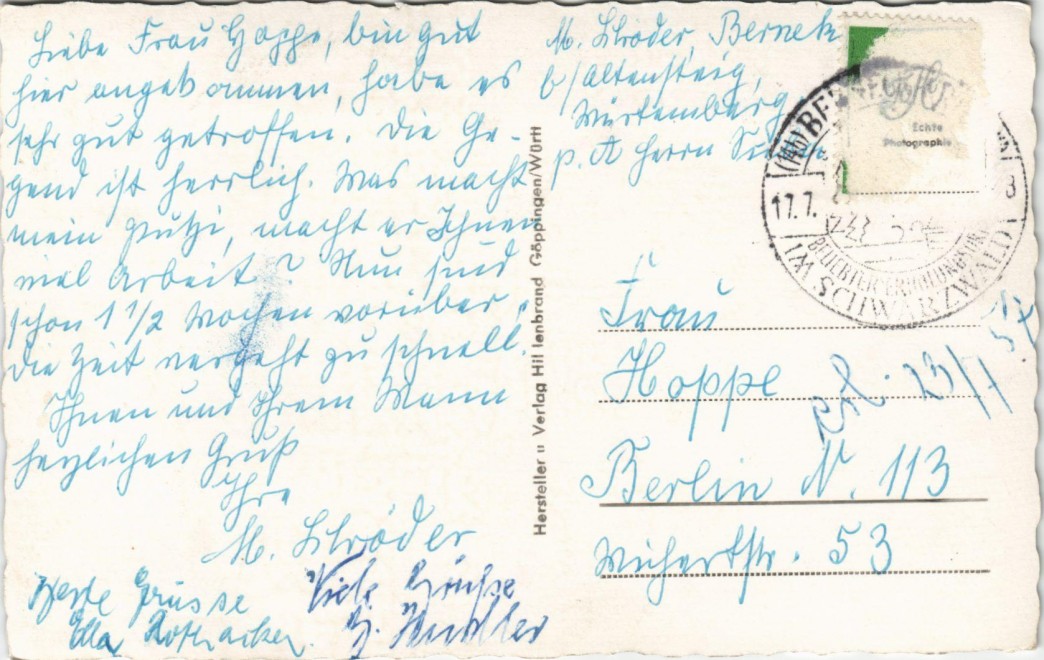 Liebe Frau Hoppe, bin gut
hier angekommen, habe es
sehr gut getroffen. Die Ge-
gend ist herrlich. Was macht
mein Putzi, macht er Ihnen
viel Arbeit? Nun sind
schon 1 1/2 Wochen vorüber,
die Zeit vergeht zu schnell.
Ihnen und Ihrem Mann
herzlichen Gruß
Ihre
M. Schröder
Beste Grüsse
Ella
Viele Grüße
M. Schröder, Berneck
b/Altensteig,
Württemberg
p. A Herrn
Hersteller u Verlag Hillenbrand Göppingen/Württ
Echte
Photographie
(14b) BE
17.7.
IM SCHWARZWALD
Frau
Hoppe
Berlin N. 113
Wichertstr. 53